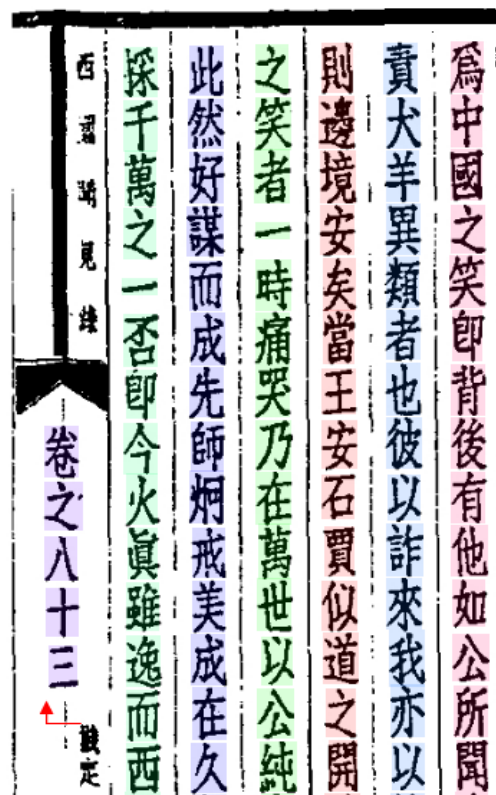 爲中國之笑卽背後有他如公所聞
責犬羊異類者也彼以詐來我亦以
則邊境安矣當王安石賈似道之開
之笑者一時痛哭乃在萬世以公純
此然好謀而成先師炯戒美成在久
採千萬之一否卽今火眞雖逸而西
西園聞見錄
卷之八十三
定